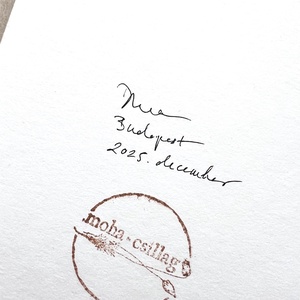 Budapest
2025. december
moha & csillag